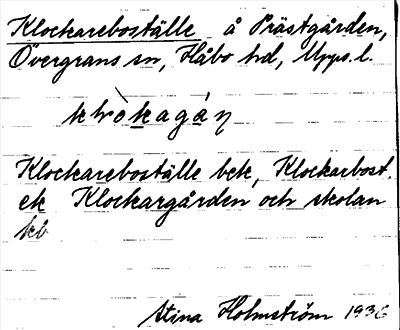 Klockareboställe å Prästgården,
Övergrans sn, Håbo hd, Upps. l.
klòkagán
Klockareboställe bek, Klockarbost.
ek Klockargården och skolan
kb
Stina Holmström 1936